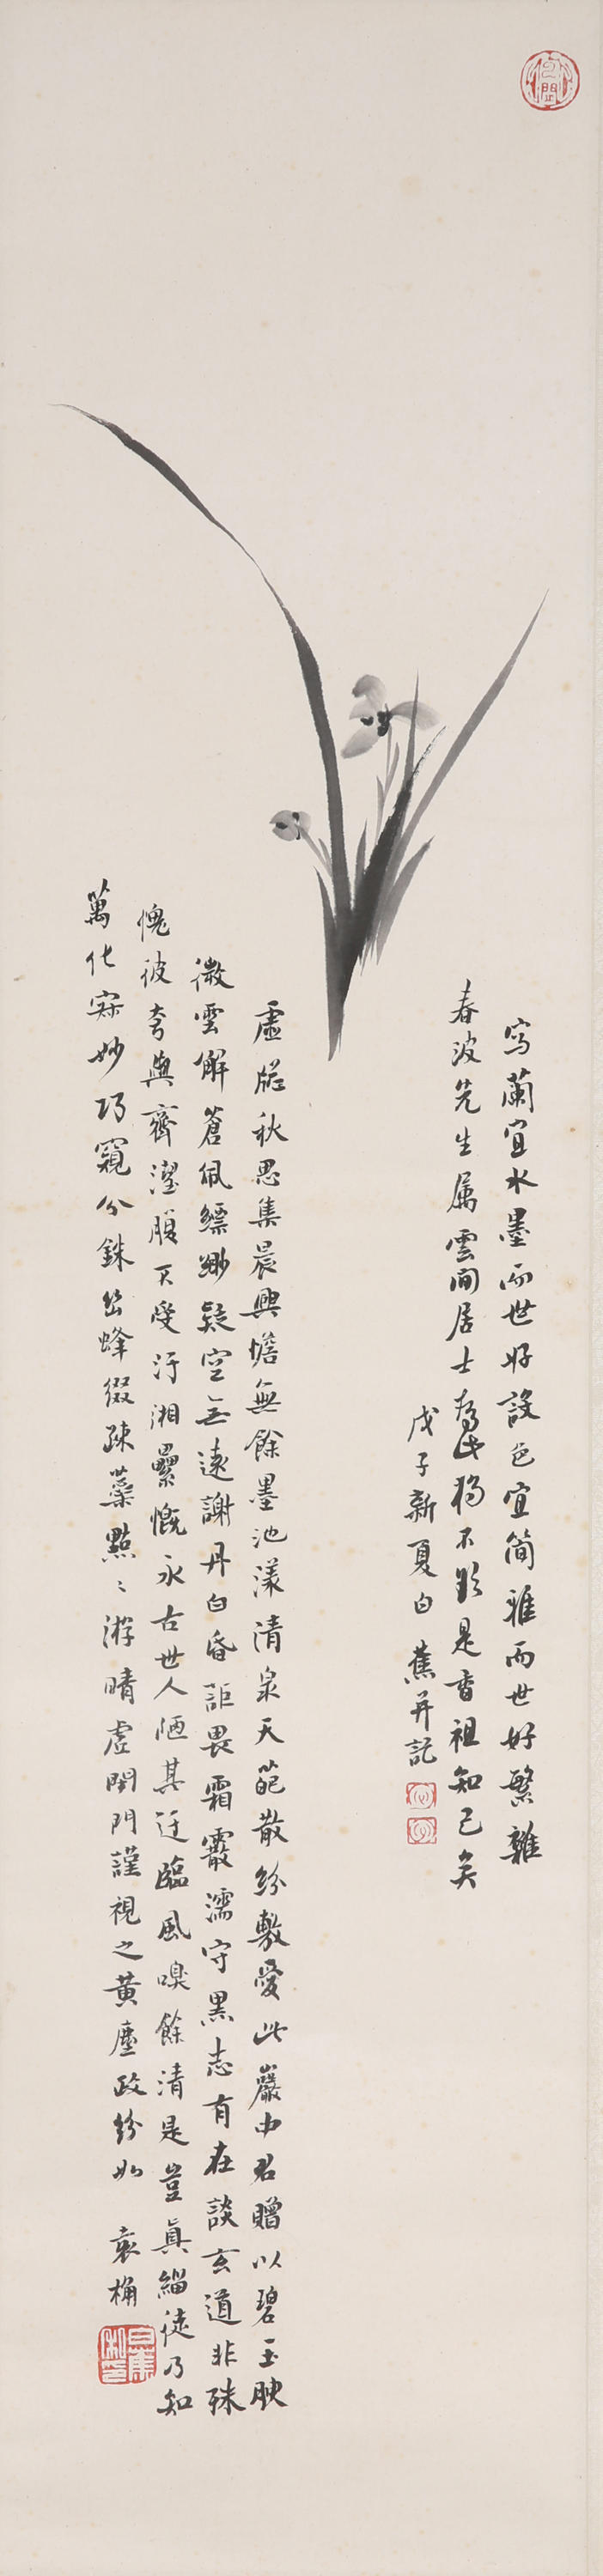 寫蘭宜水墨而世好設色宜簡雅而世好繁雜
春波先生属雲間居士為此獨不欤是香祖知己矣
戊子新夏白蕉并記
虛牕秋思集晨興憺無餘墨池漾清泉天葩散紛敷愛此巖中君贈以碧玉腴
微雲解蒼佩縹緲疑空無遠謝丹白昏詎畏霜霰濡守黑志有在談玄道非殊
愧彼夸與齊濯腹不受汙湘纍慨永古世人陋其迂臨風嗅餘清是豈真緇徒乃知
萬化寂妙巧窺分銖岀蜂綴疎蘂點〻游晴虛閉門謹視之黃塵政紛如 袁桷